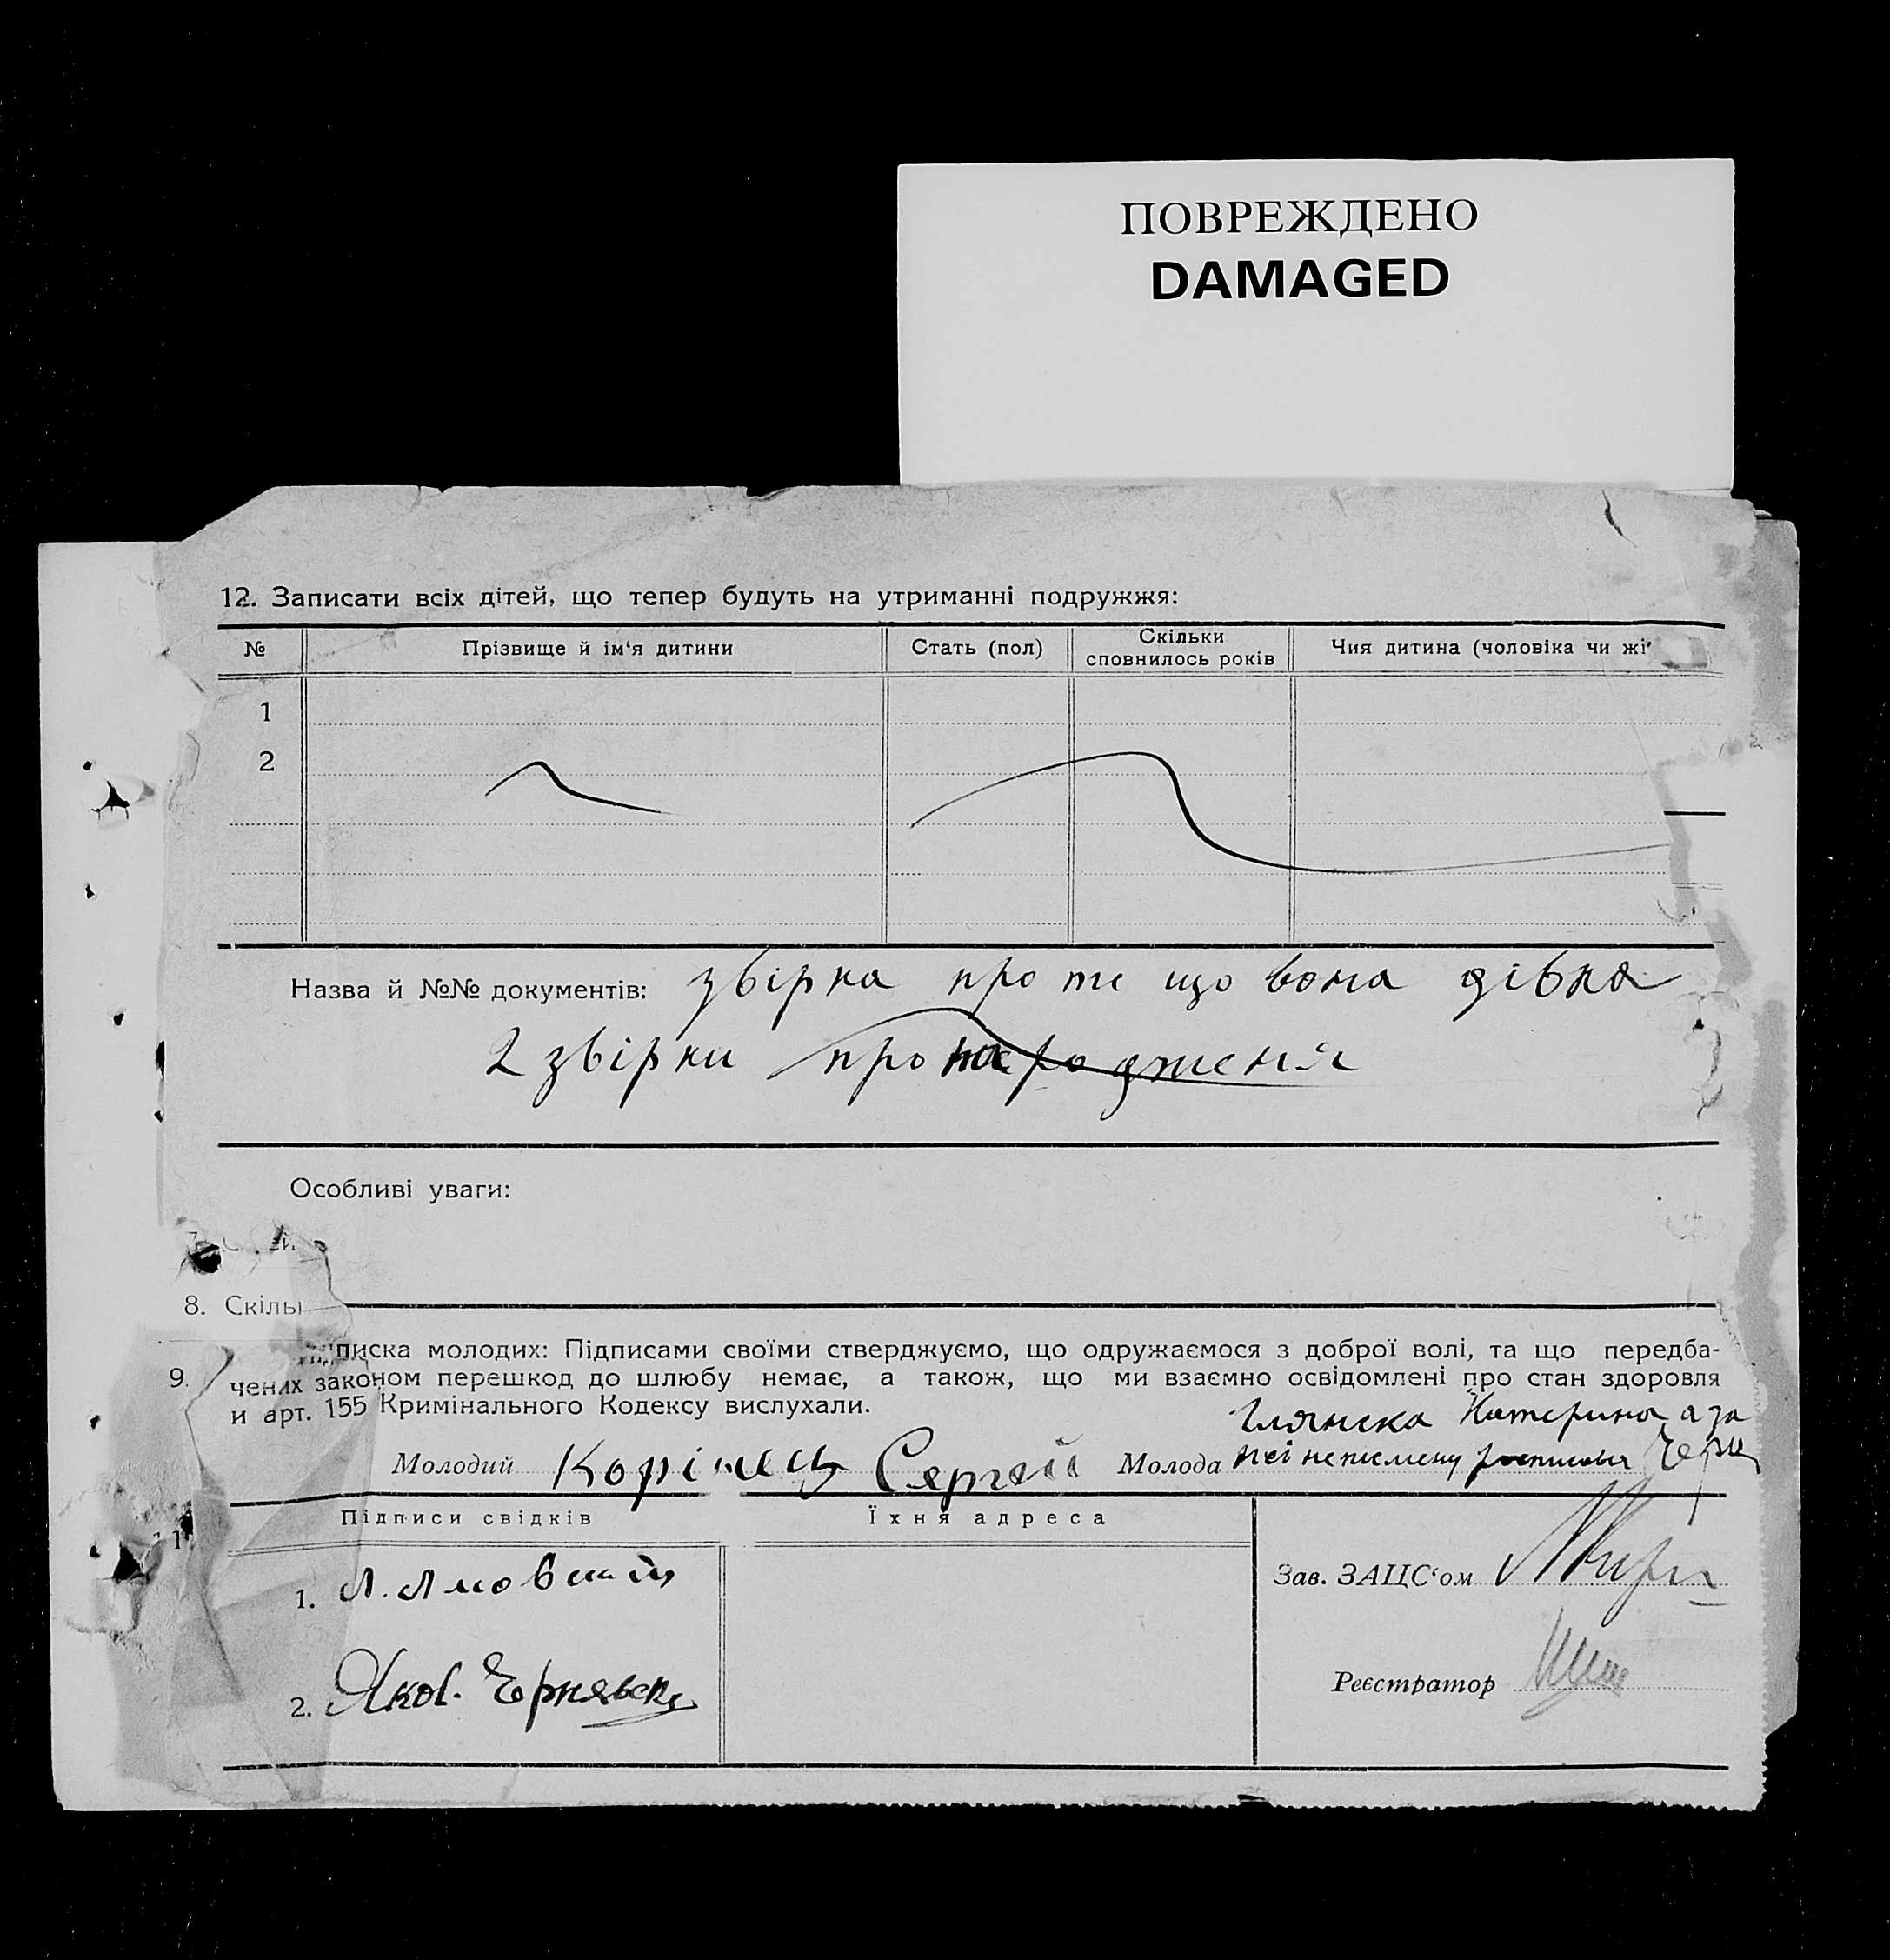 ПОВРЕЖДЕНО
DAMAGED
12. Записати всіх дітей, що тепер будуть на утриманні подружжя:
№ Прізвище й ім'я дитини Стать (пол) Скільки сповнилось років Чия дитина (чоловіка чи жі
1
2
Назва й №№ документів: звірка про те що вона дівка
2 звірки про народженія
Особливі уваги:
8. Скільк
9. Підписка молодих: Підписами своїми стверджуємо, що одружаємося з доброї волі, та що передба-
чених законом перешкод до шлюбу немає, а також, що ми взаємно освідомлені про стан здоровля
и арт. 155 Кримінального Кодексу вислухали.
Катерина а за
Молодий Корінець Сергій Молода неї неписмену
Підписи свідків Їхня адреса
Зав. ЗАЦС'ом
1.
Реєстратор
2. Яков.